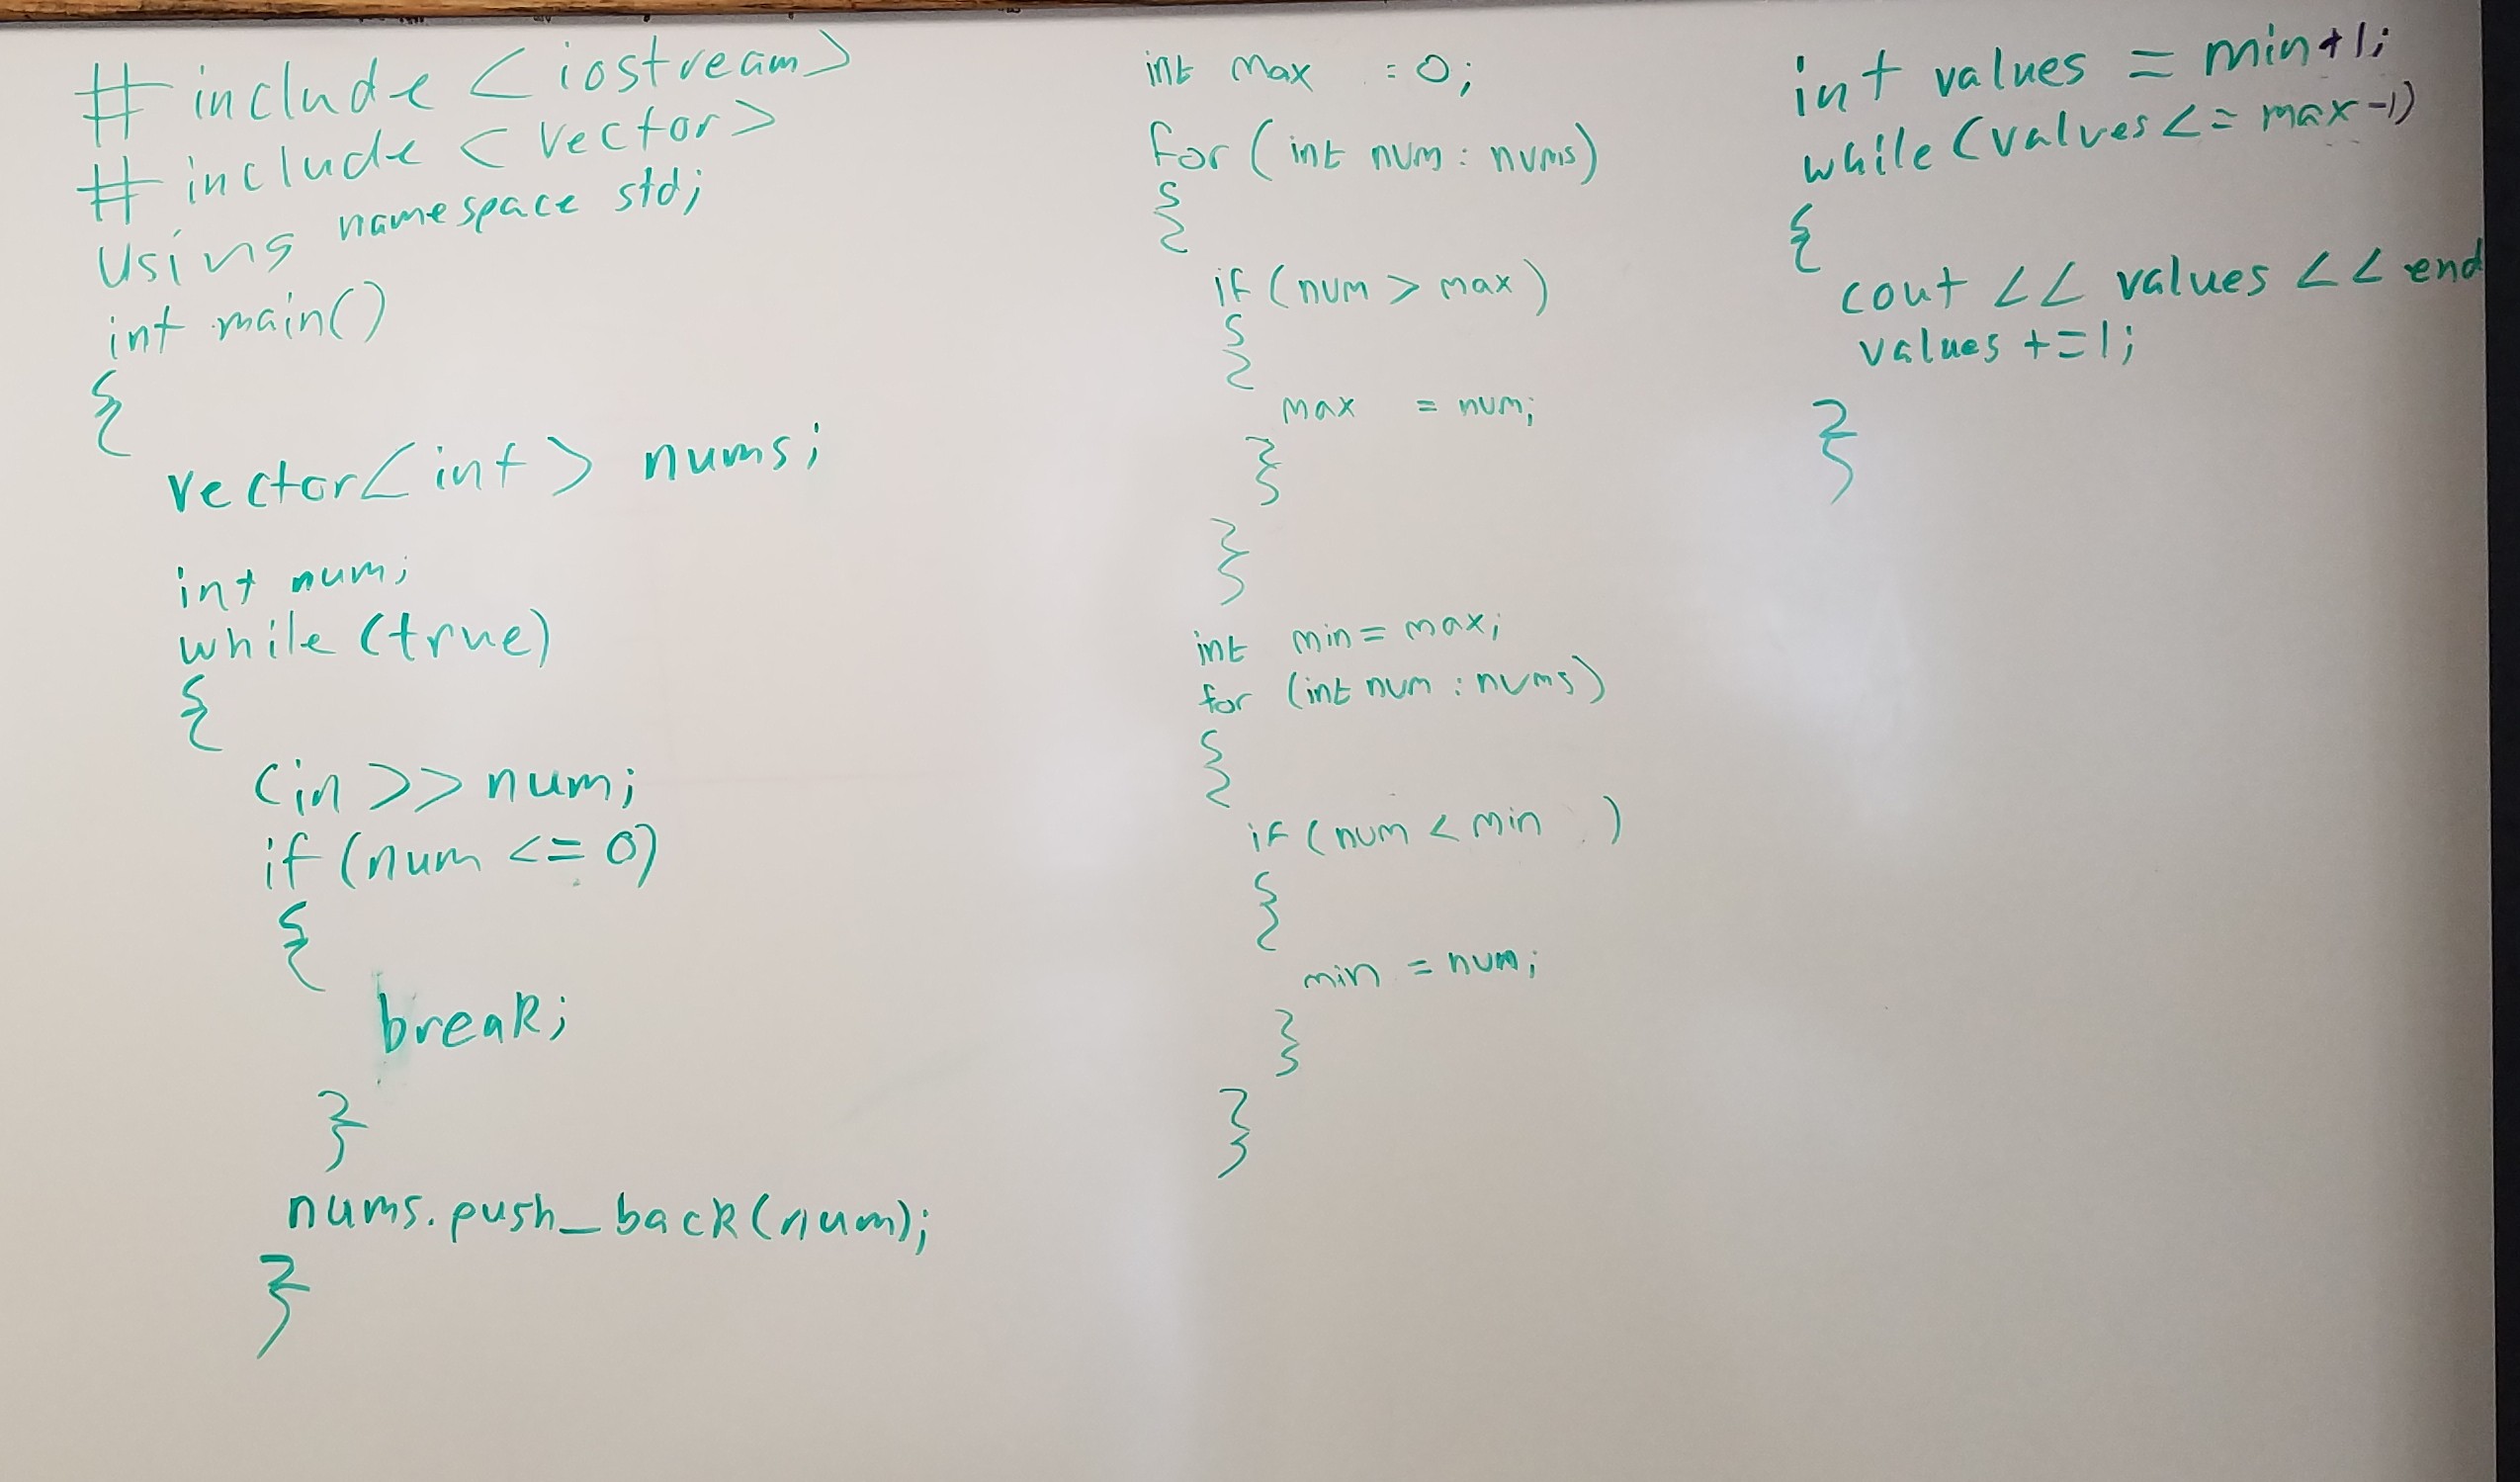 # include <iostream>
# include <vector>
Using namespace std;
int main()
{
vector<int> nums;
int num;
while (true)
{
cin >> num;
if (num <= 0)
{
break;
}
nums.push_back(num);
}
int max = 0;
for (int num : nums)
{
if (num > max)
{
max = num;
}
}
int min = max;
for (int num : nums)
{
if (num < min )
{
min = num;
}
}
int values = min+1;
while (values <= max-1)
{
cout << values << end
values +=1;
}